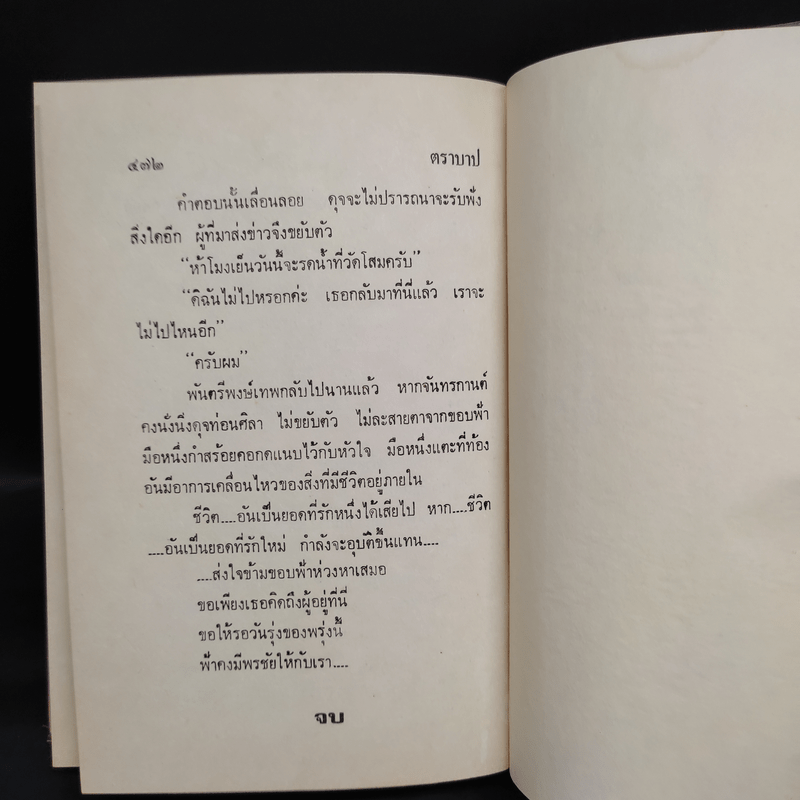 ๔๗๒ ตราบาป
คำตอบนั้นเลื่อนลอย ดุจจะไม่ปรารถนาจะรับฟัง
สิ่งใดอีก ผู้ที่มาส่งข่าวจึงขยับตัว
“ห้าโมงเย็นวันนี้จะรดน้ำที่วัดโสมครับ”
“ดิฉันไม่ไปหรอกค่ะ เธอกลับมาที่นี่แล้ว เราจะ
ไม่ไปไหนอีก”
“ครับผม”
พันตรีพงษ์เทพกลับไปนานแล้ว หากจันทรกานต์
คงนั่งนิ่งดุจท่อนศิลา ไม่ขยับตัว ไม่ละสายตาจากขอบฟ้า
มือหนึ่งกำสร้อยคอกดแนบไว้กับหัวใจ มือหนึ่งแตะที่ท้อง
อันมีอาการเคลื่อนไหวของสิ่งที่มีชีวิตอยู่ภายใน
ชีวิต....อันเป็นยอดที่รักหนึ่งได้เสียไป หาก....ชีวิต
....อันเป็นยอดที่รักใหม่ กำลังจะอุบัติขึ้นแทน....
....ส่งใจข้ามขอบฟ้าห่วงหาเสมอ
ขอเพียงเธอคิดถึงผู้อยู่ที่นี่
ขอให้รอวันรุ่งของพรุ่งนี้
ฟ้าคงมีพรชัยให้กับเรา....
จบ